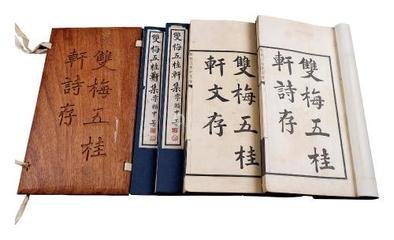 雙梅五桂
軒詩存
雙梅五桂
軒文存
雙梅五桂軒集
雙梅五桂軒集
雙梅五桂
軒詩存